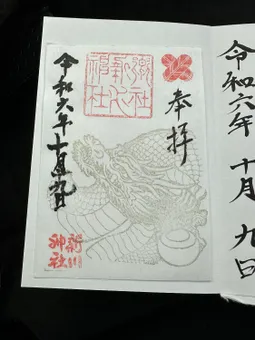 令和六年 十月 九日
奉拝
令和六年十月九日
新川
神社